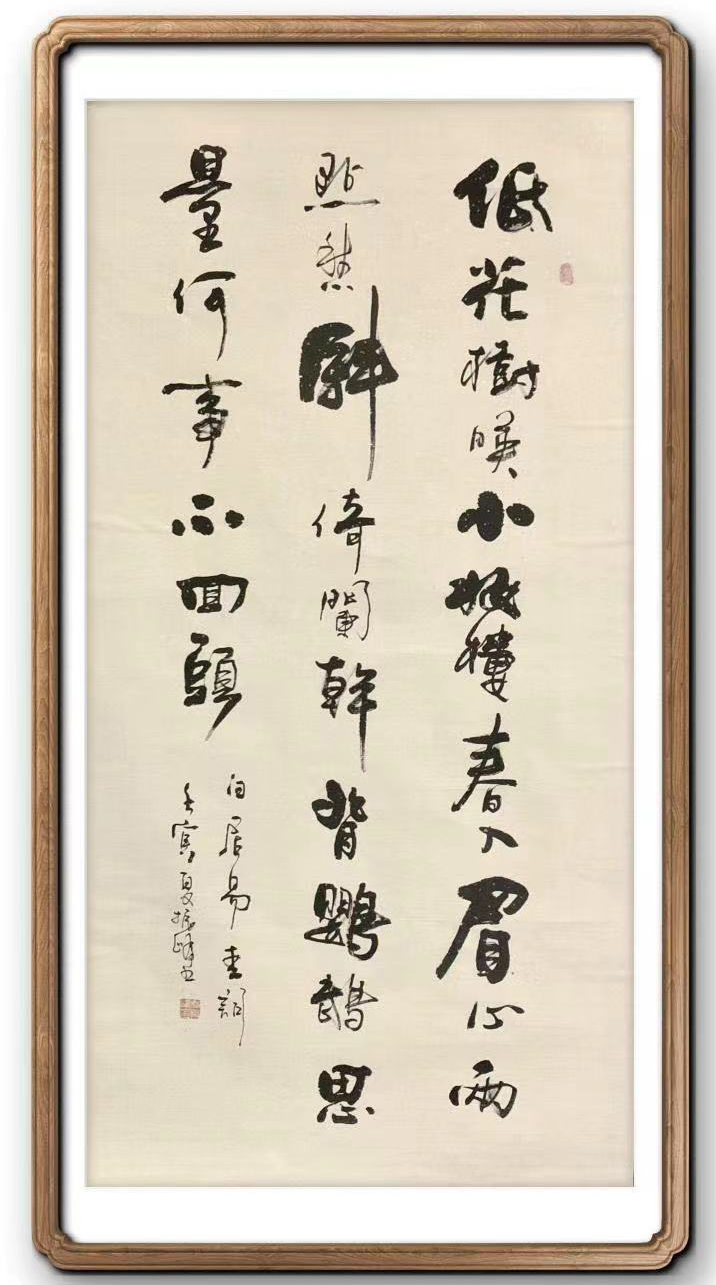 低花樹暎小妝樓春入眉心兩
點愁斜倚闌幹背鸚鵡思
量何事不回頭
白居易春詞
壬寅夏振峰书